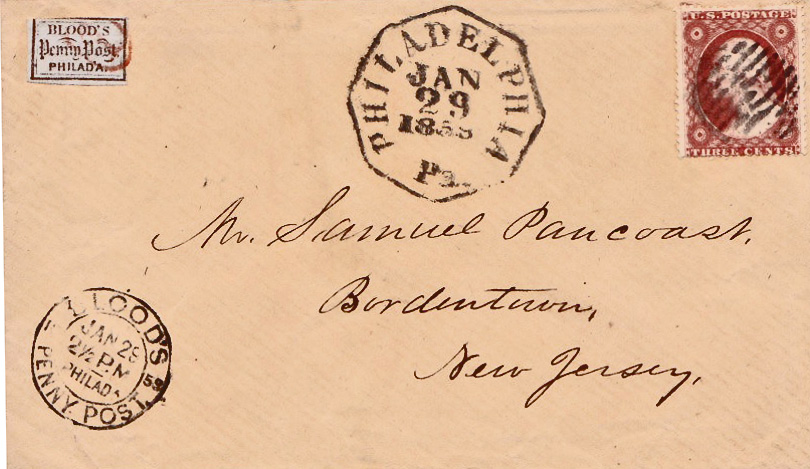 BLOOD'S
Penny Post
PHILAD'A.
PHILADELPHIA
JAN
29
Pa.
U.S. POSTAGE
THREE CENTS
Mr. Samuel Pancoast,
Bordentown,
New Jersey,
BLOOD'S
JAN 29
2½ P.M
PHILADA
'59
PENNY POST